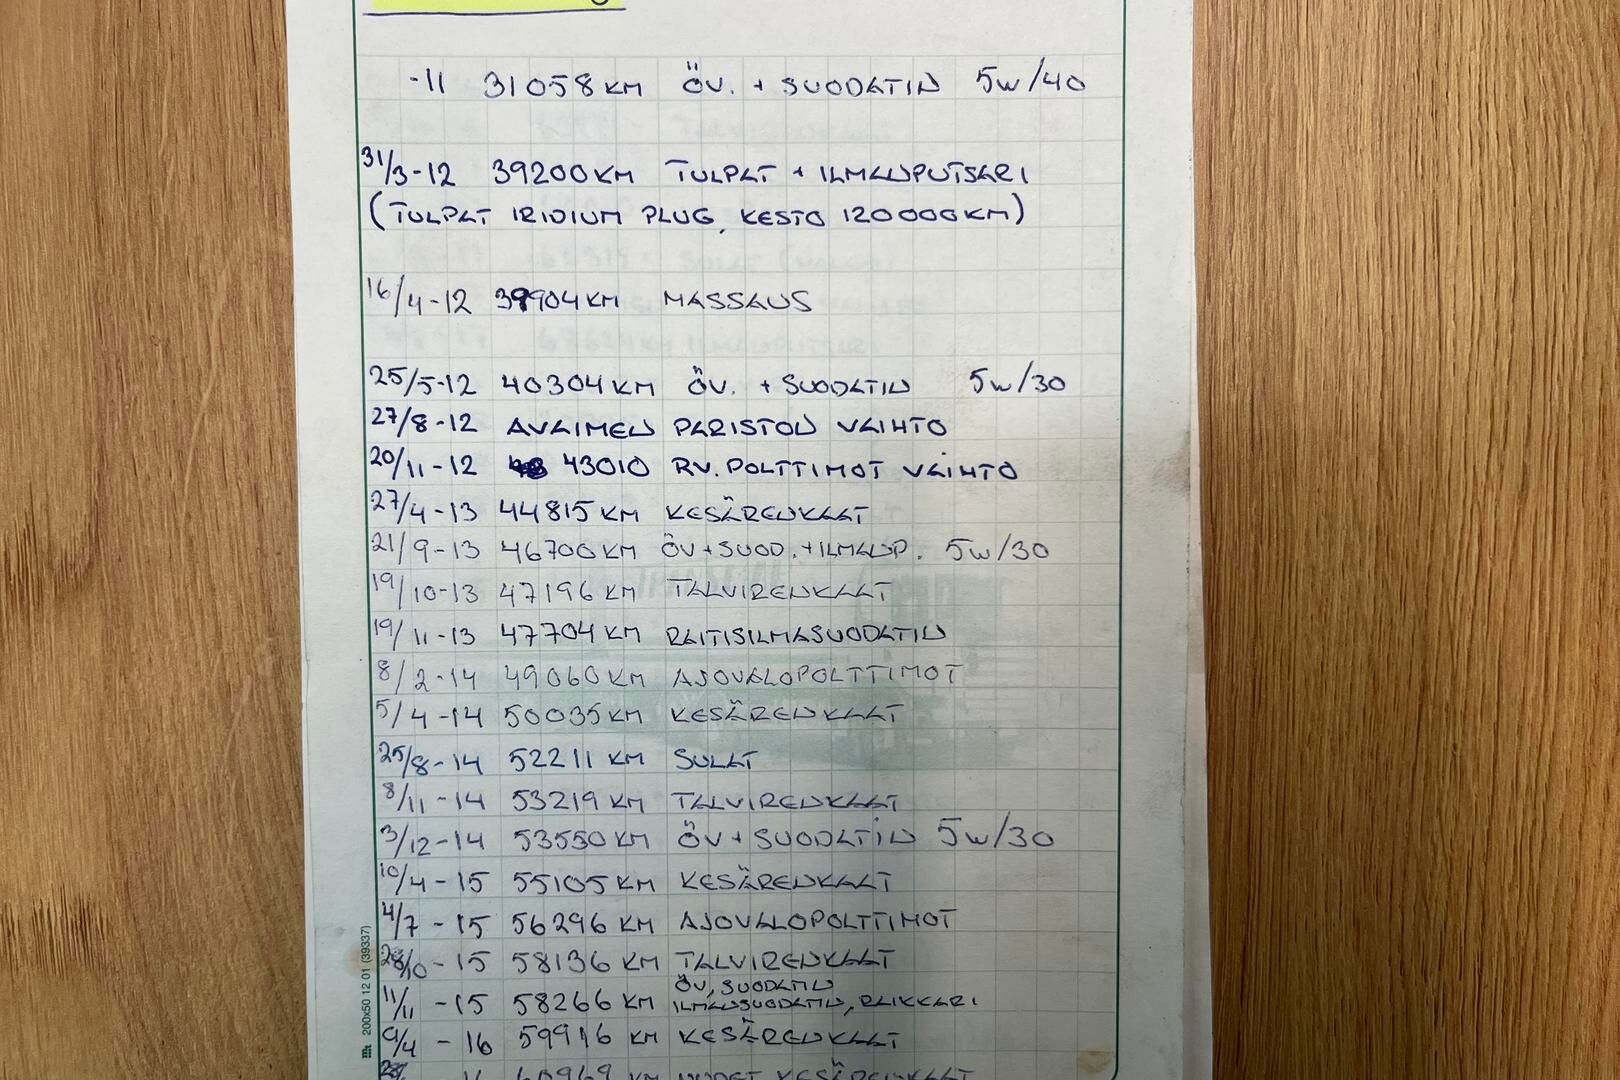 -11 31058 KM ÖV. + SUODATIN 5W/40
31/3-12 39200 KM TULPAT + ILMANPUTSARI
(TULPAT IRIDIUM PLUG, KESTO 120000KM)
16/4-12 39904 KM MASSAUS
25/5-12 40304 KM ÖV. + SUODATIN 5W/30
27/8-12 AVAIMEN PARISTON VAIHTO
20/11-12 43010 RV. POLTTIMOT VAIHTO
27/4-13 44815 KM KESÄRENKAAT
21/9-13 46700 KM ÖV + SUOD. + ILMANP. 5W/30
19/10-13 47196 KM TALVIRENKAAT
19/11-13 47704 KM RAITISILMASUODATIN
8/2-14 49060 KM AJOVALOPOLTTIMOT
5/4-14 50035 KM KESÄRENKAAT
25/8-14 52211 KM SULAT
8/11-14 53219 KM TALVIRENKAAT
3/12-14 53550 KM ÖV + SUODATIN 5W/30
10/4-15 55105 KM KESÄRENKAAT
4/7-15 56296 KM AJOVALOPOLTTIMOT
28/10-15 58136 KM TALVIRENKAAT
11/11-15 58266 KM ÖV, SUODATIN
ILMANSUODATIN, RAIKKARI
9/4-16 59916 KM KESÄRENKAAT
60969 KM UUDET KESÄRENKAAT
200x50 12 01 (39337)